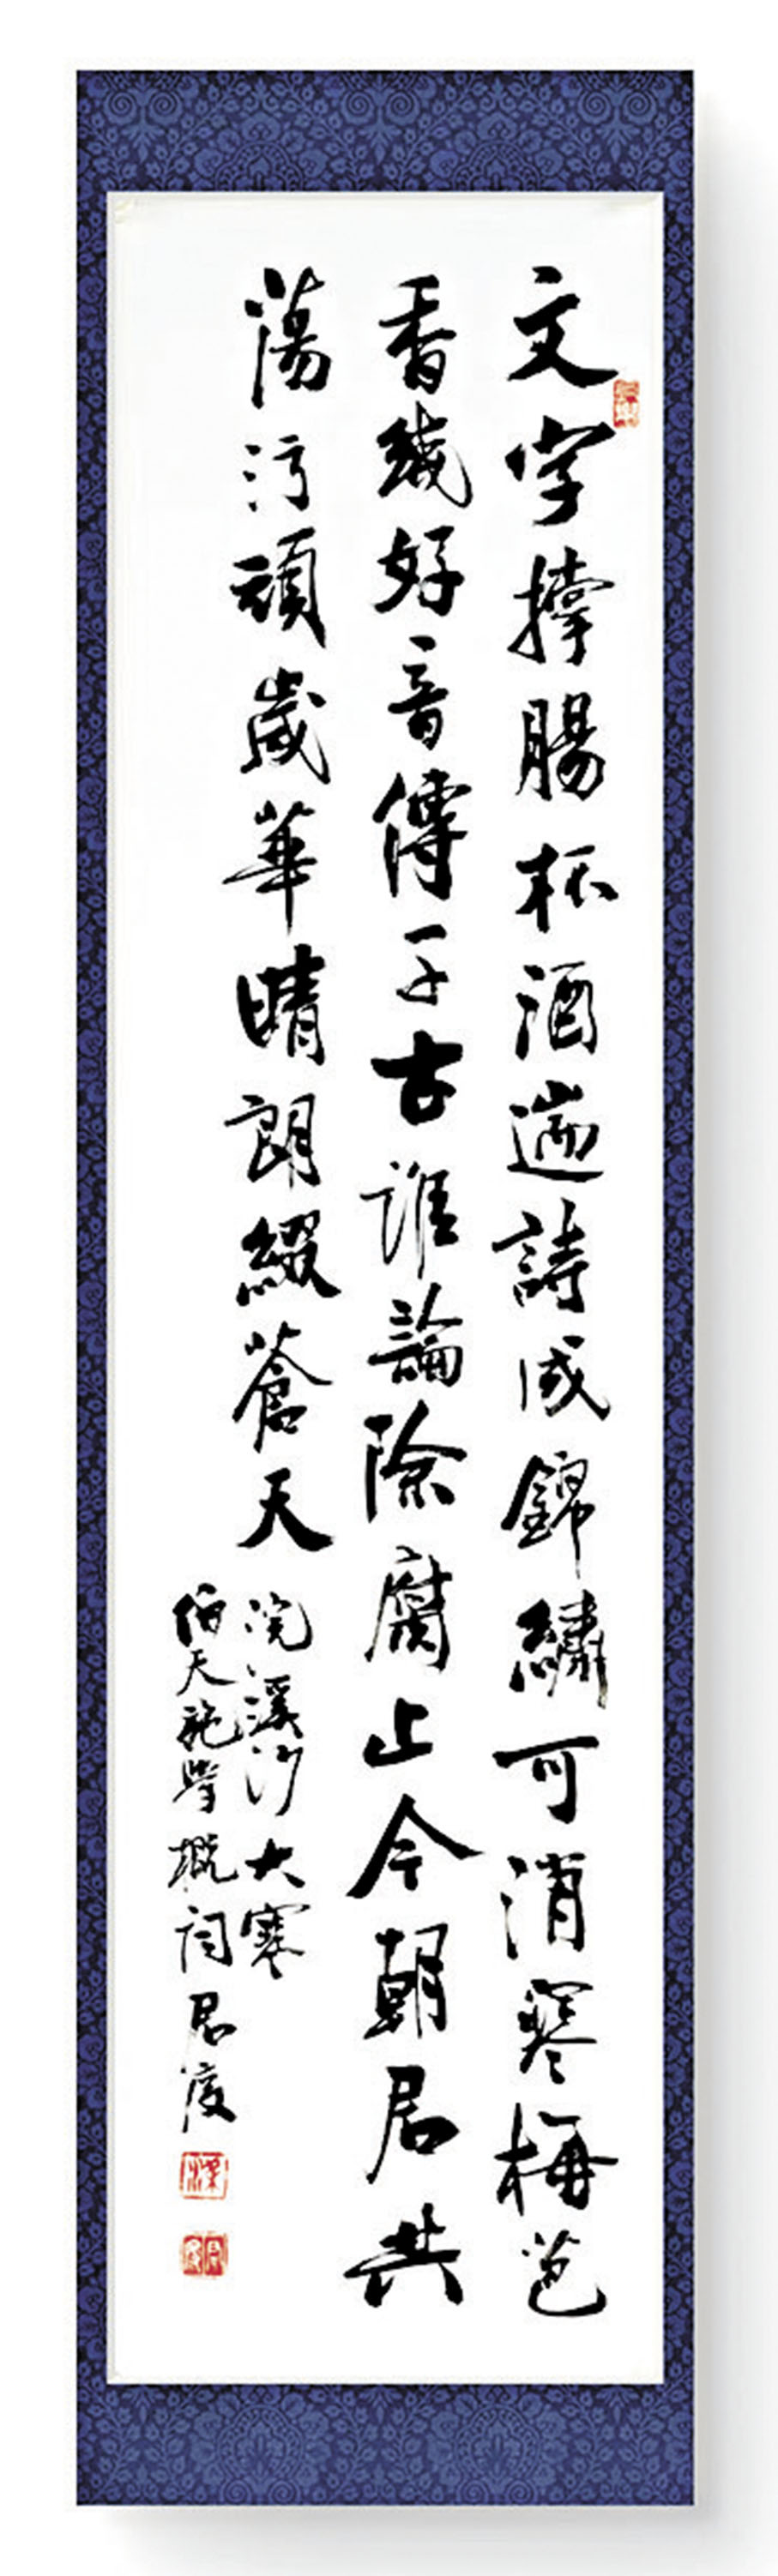 文字撐腸杯酒邊詩成錦繡可消寒梅芭
香幾好音傳千古誰論除腐止今朝君共
蕩污頑歲華晴朗綴蒼天
浣溪沙大寒
伯天 君度